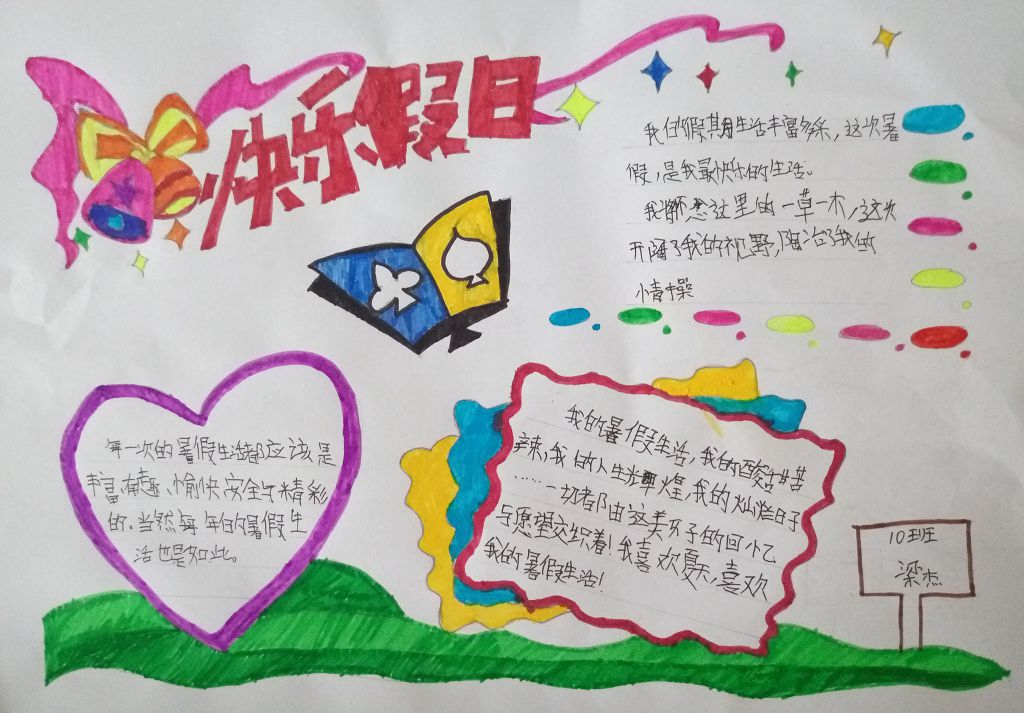 快乐假日
我的假期生活丰富多采，这次暑
假，是我最快乐的生活。
我怀念这里的一草一木，这次
开阔了我的视野，陶冶了我的
情操
每一次的暑假生活都应该是
丰富、有趣、愉快、安全与精彩
的，当然每年的暑假生
活也是如此。
我的暑假生活，我的酸甜苦
辣，我的人生辉煌，我的灿烂日子
……一切都由这美好的回忆
与愿望交织着！我喜欢夏乐，喜欢
我的暑假生活！
10班
梁杰